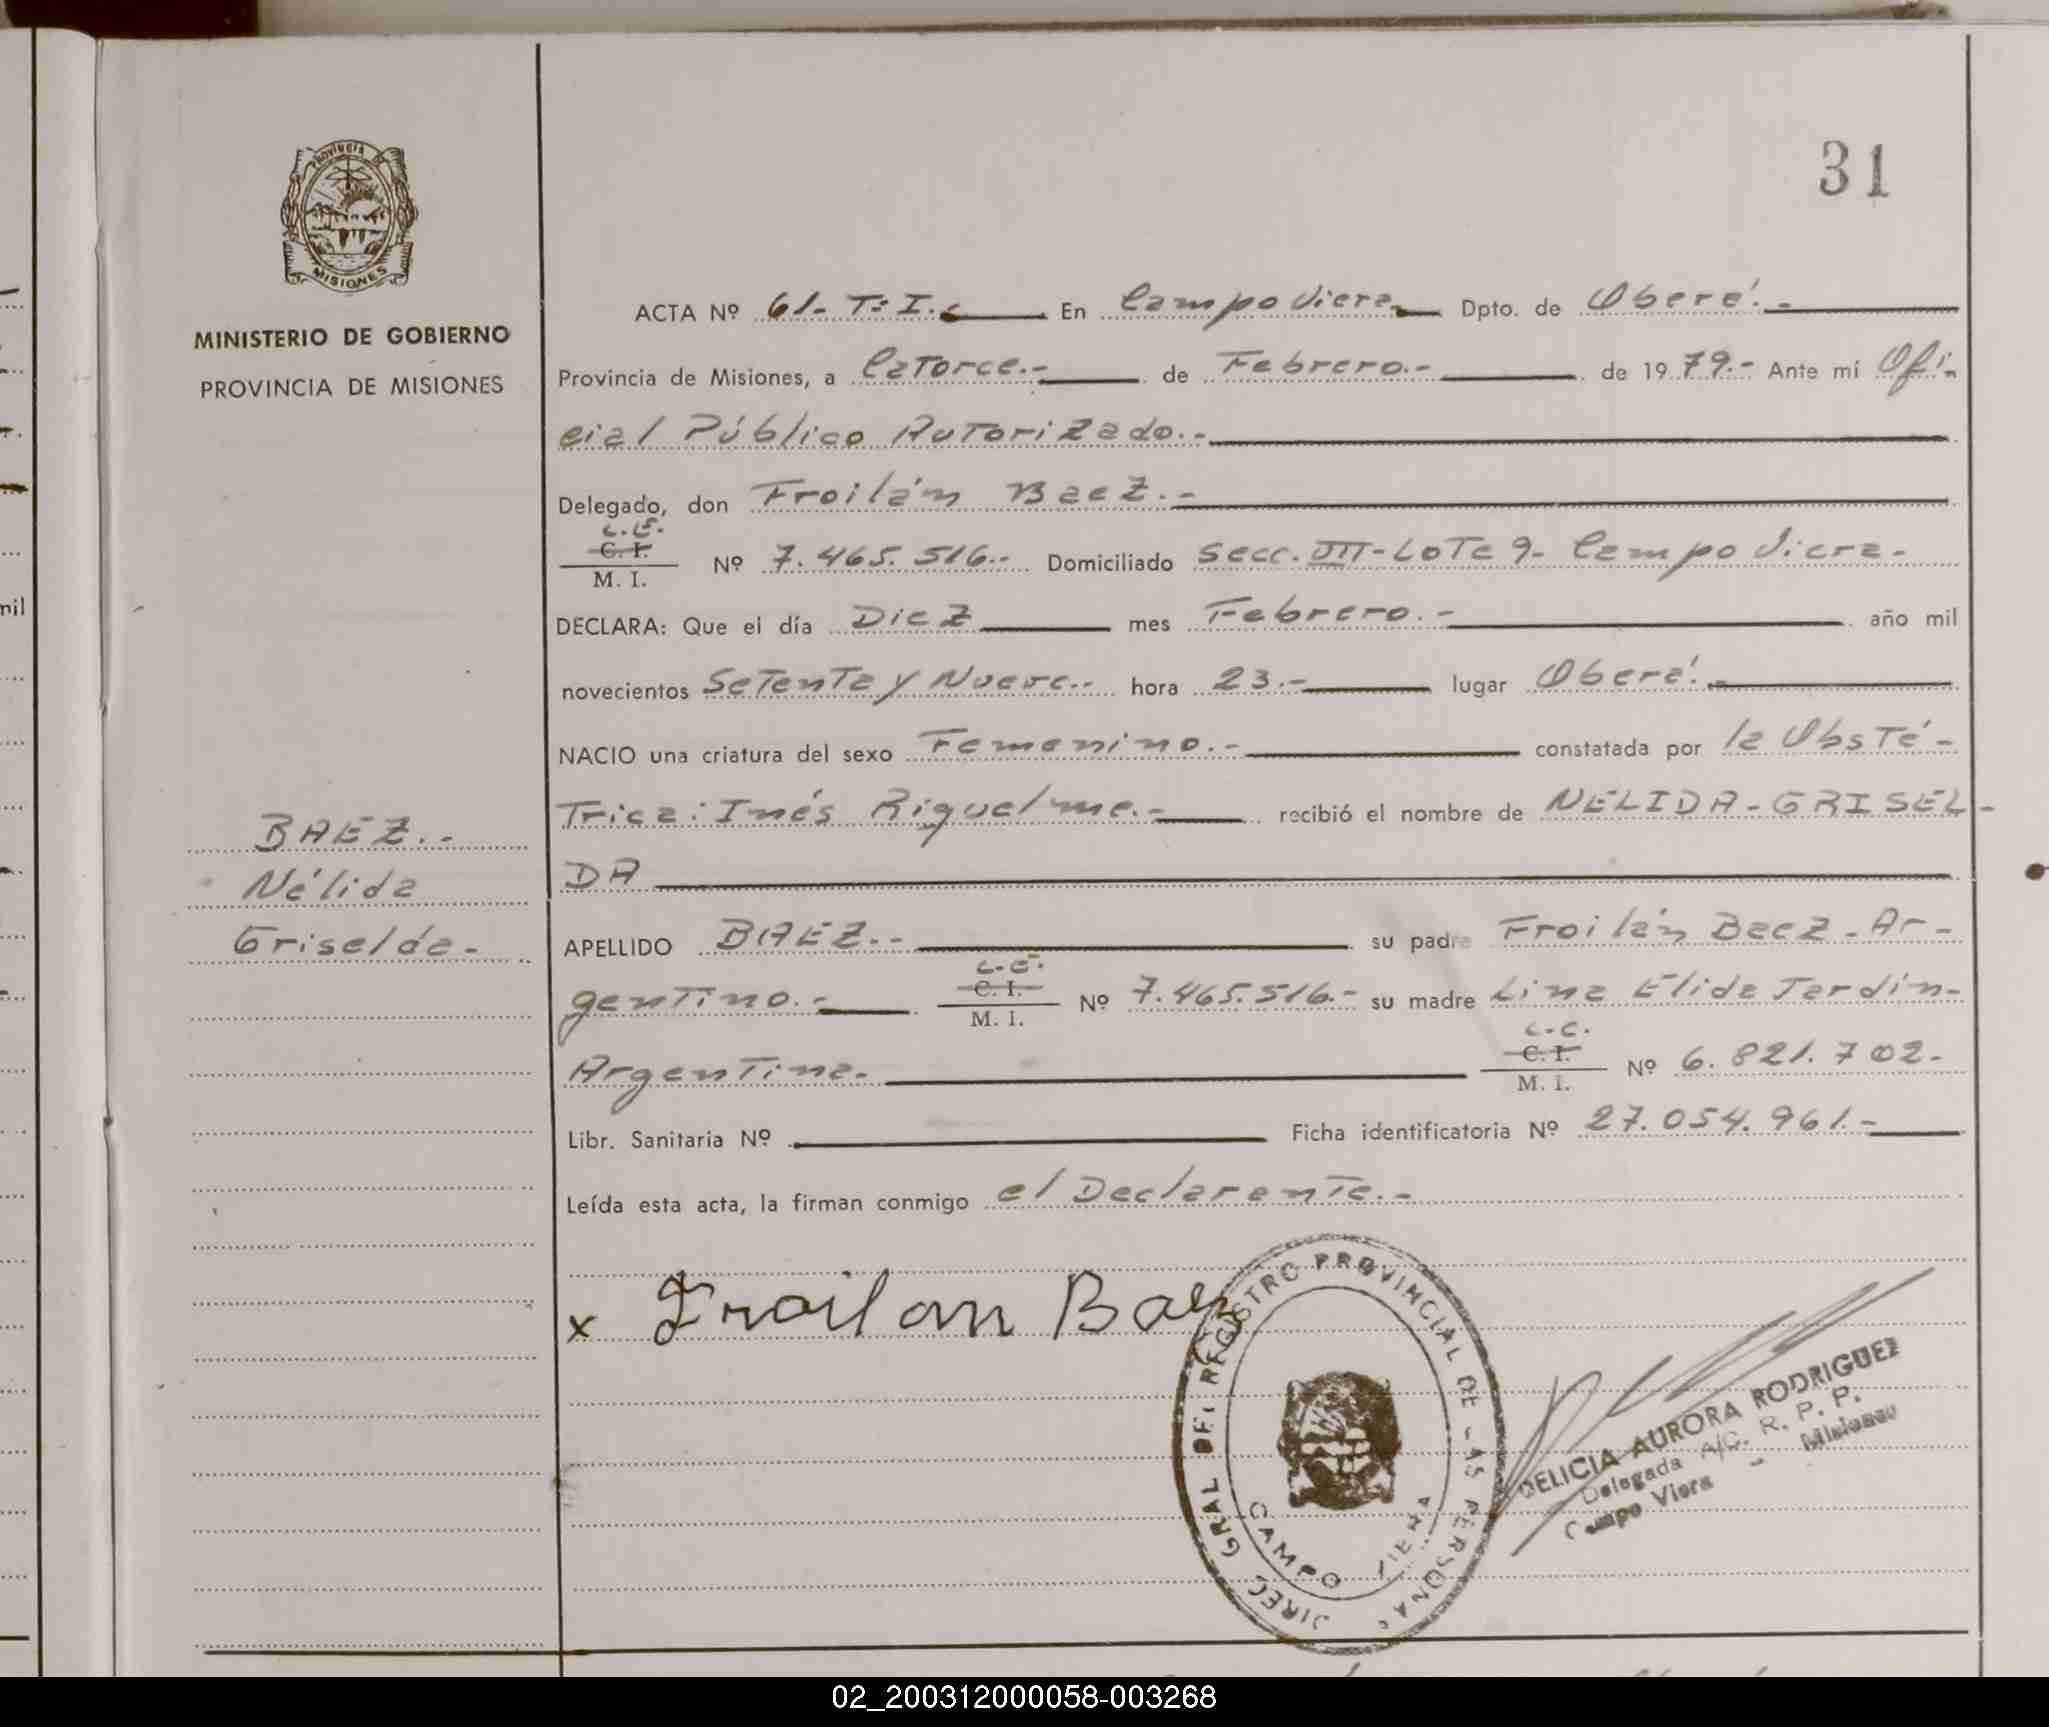 PROVINCIA DE
MISIONES
MINISTERIO DE GOBIERNO
PROVINCIA DE MISIONES
31
ACTA Nº 61.- Tº I.- En Campo Viera Dpto. de Oberá.-
Provincia de Misiones, a Catorce.- de Febrero.- de 1979.- Ante mí Ofi-
cial Público Autorizado.-
Delegado, don Froilán Baez.-
L.E.
C. I.
M. I. Nº 7.465.516.- Domiciliado Secc. VII-Lote 9- Campo Viera-
DECLARA: Que el día Diez mes Febrero.- año mil
novecientos Setenta y Nueve.- hora 23.- lugar Oberá.-
NACIO una criatura del sexo Femenino.- constatada por la Obsté-
trica: Inés Riquelme.- recibió el nombre de NELIDA-GRISEL-
DA
BAEZ.-
Nélida
Griselda-
APELLIDO BAEZ.- su padre Froilán Baez-Ar-
gentino.- L.E. C. I. M. I. Nº 7.465.516.- su madre Lina Elida Jardin-
Argentina- L.C. C. I. M. I. Nº 6.821.702-
Libr. Sanitaria Nº Ficha identificatoria Nº 27.054.961.-
Leída esta acta, la firman conmigo el Declarante.-
x Froilan Baez
DIREC GRAL DEL REGISTRO PROVINCIAL DE LAS PERSONAS
CAMPO VIERA
DELICIA AURORA RODRIGUEZ
Delegada A/C. R. P. P.
Campo Viera - Misiones
mil
02_200312000058-003268